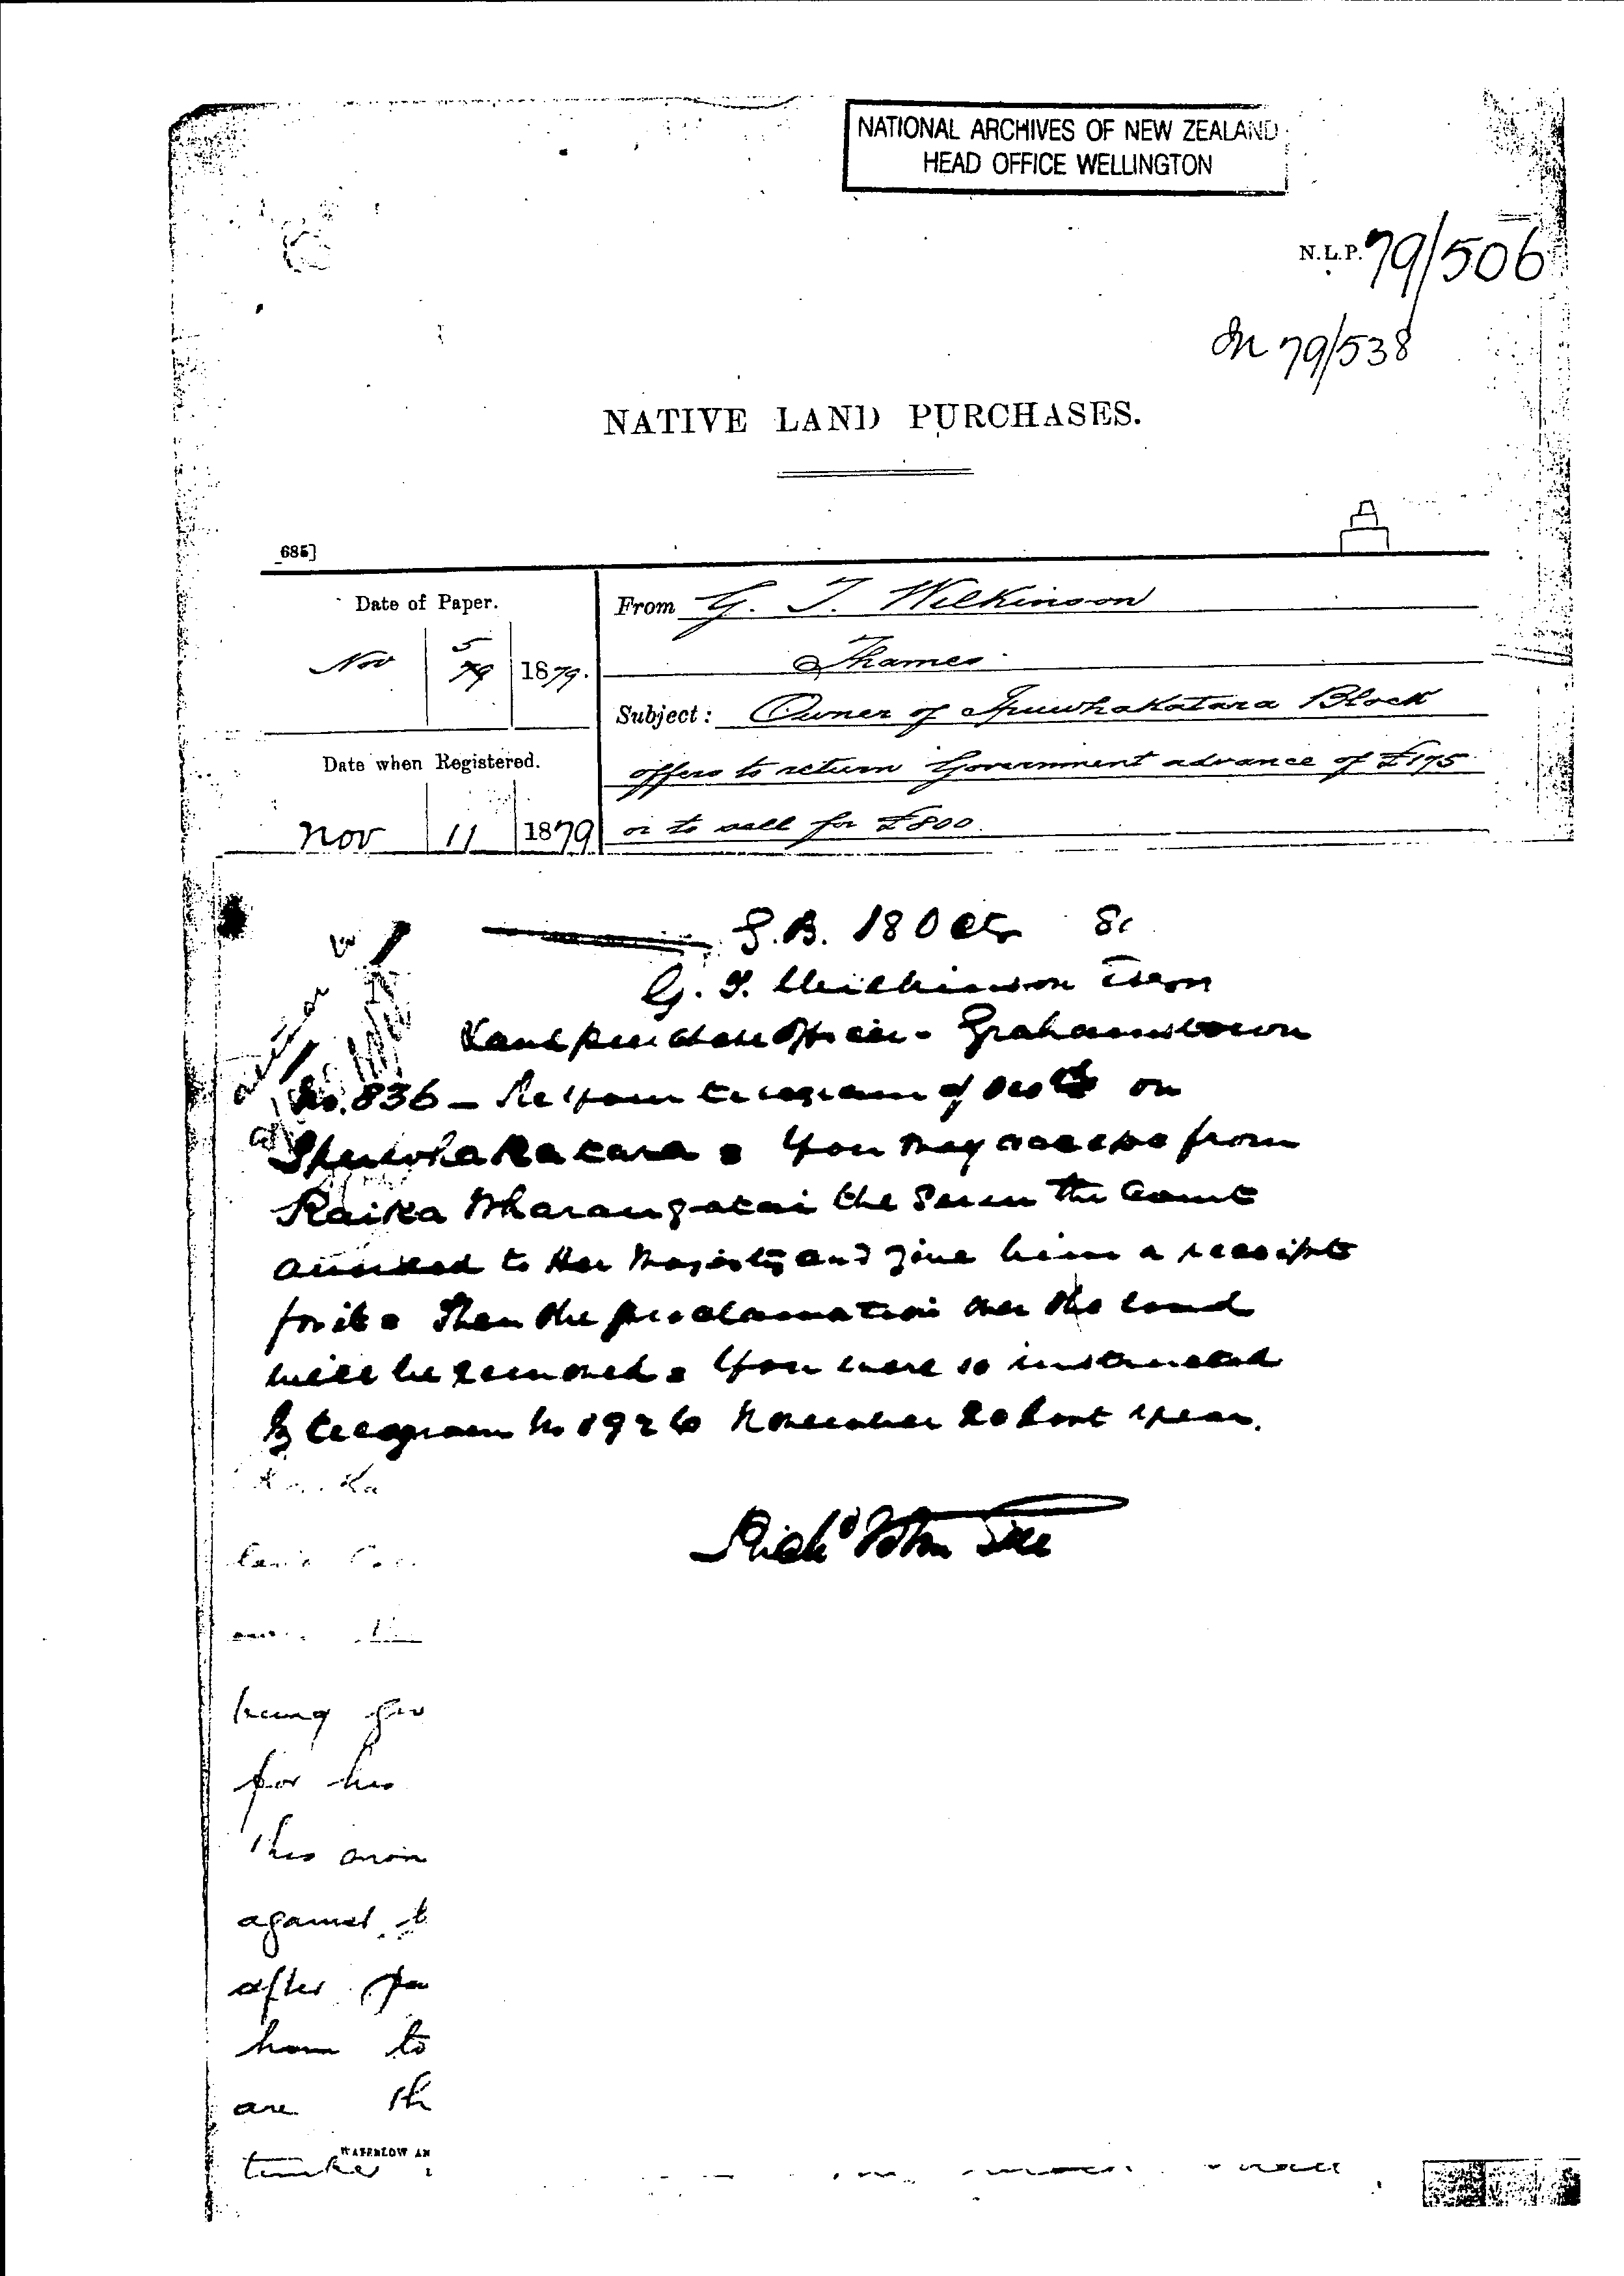 NATIONAL ARCHIVES OF NEW ZEALAND
HEAD OFFICE WELLINGTON
N.L.P. 79/506
In 79/538
NATIVE LAND PURCHASES.
685]
Date of Paper.
Nov 5 79 1879.
From G. T. Wilkinson
Thames
Subject: Owner of Ipuwhakatara Block
offers to return Government advance of £195
or to sell for £800.
Date when Registered.
Nov 11 1879
G.B. 18 Oct 80
G. T. Wilkinson Esqr
Land purchase Officer - Grahamstown
No. 836 - Re your telegram of on
Ipuwhakatara = You may accept from
Raika Wharangatai the Sum the Court
awarded to Her Majesty and give him a receipt
for it = Then the proclamation over the land
will be removed = You were so instructed
By telegram No 1926 November 20 last year.
Richd John Gill
being
for his
this
against
after
him to
are th
WATERLOW AN
timber